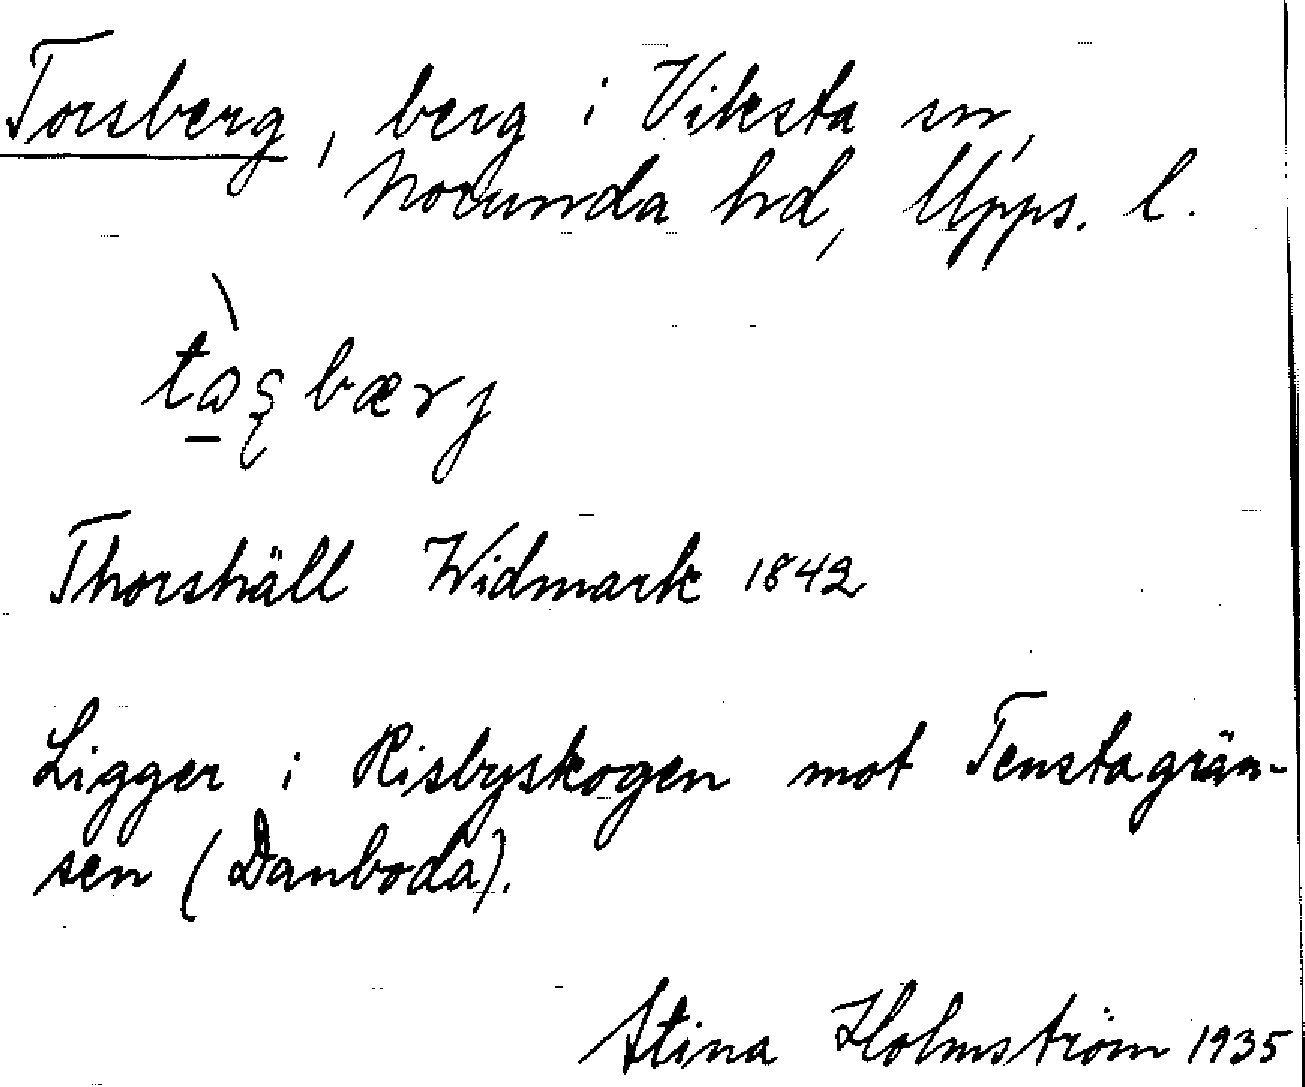 Torsberg, berg i Viksta sn,
Norunda hd, Upps. l.
tàʂbærj
Thorshäll Widmark 1842
Ligger i Risbyskogen mot Tenstagrän-
sen (Danboda).
Stina Holmström 1935